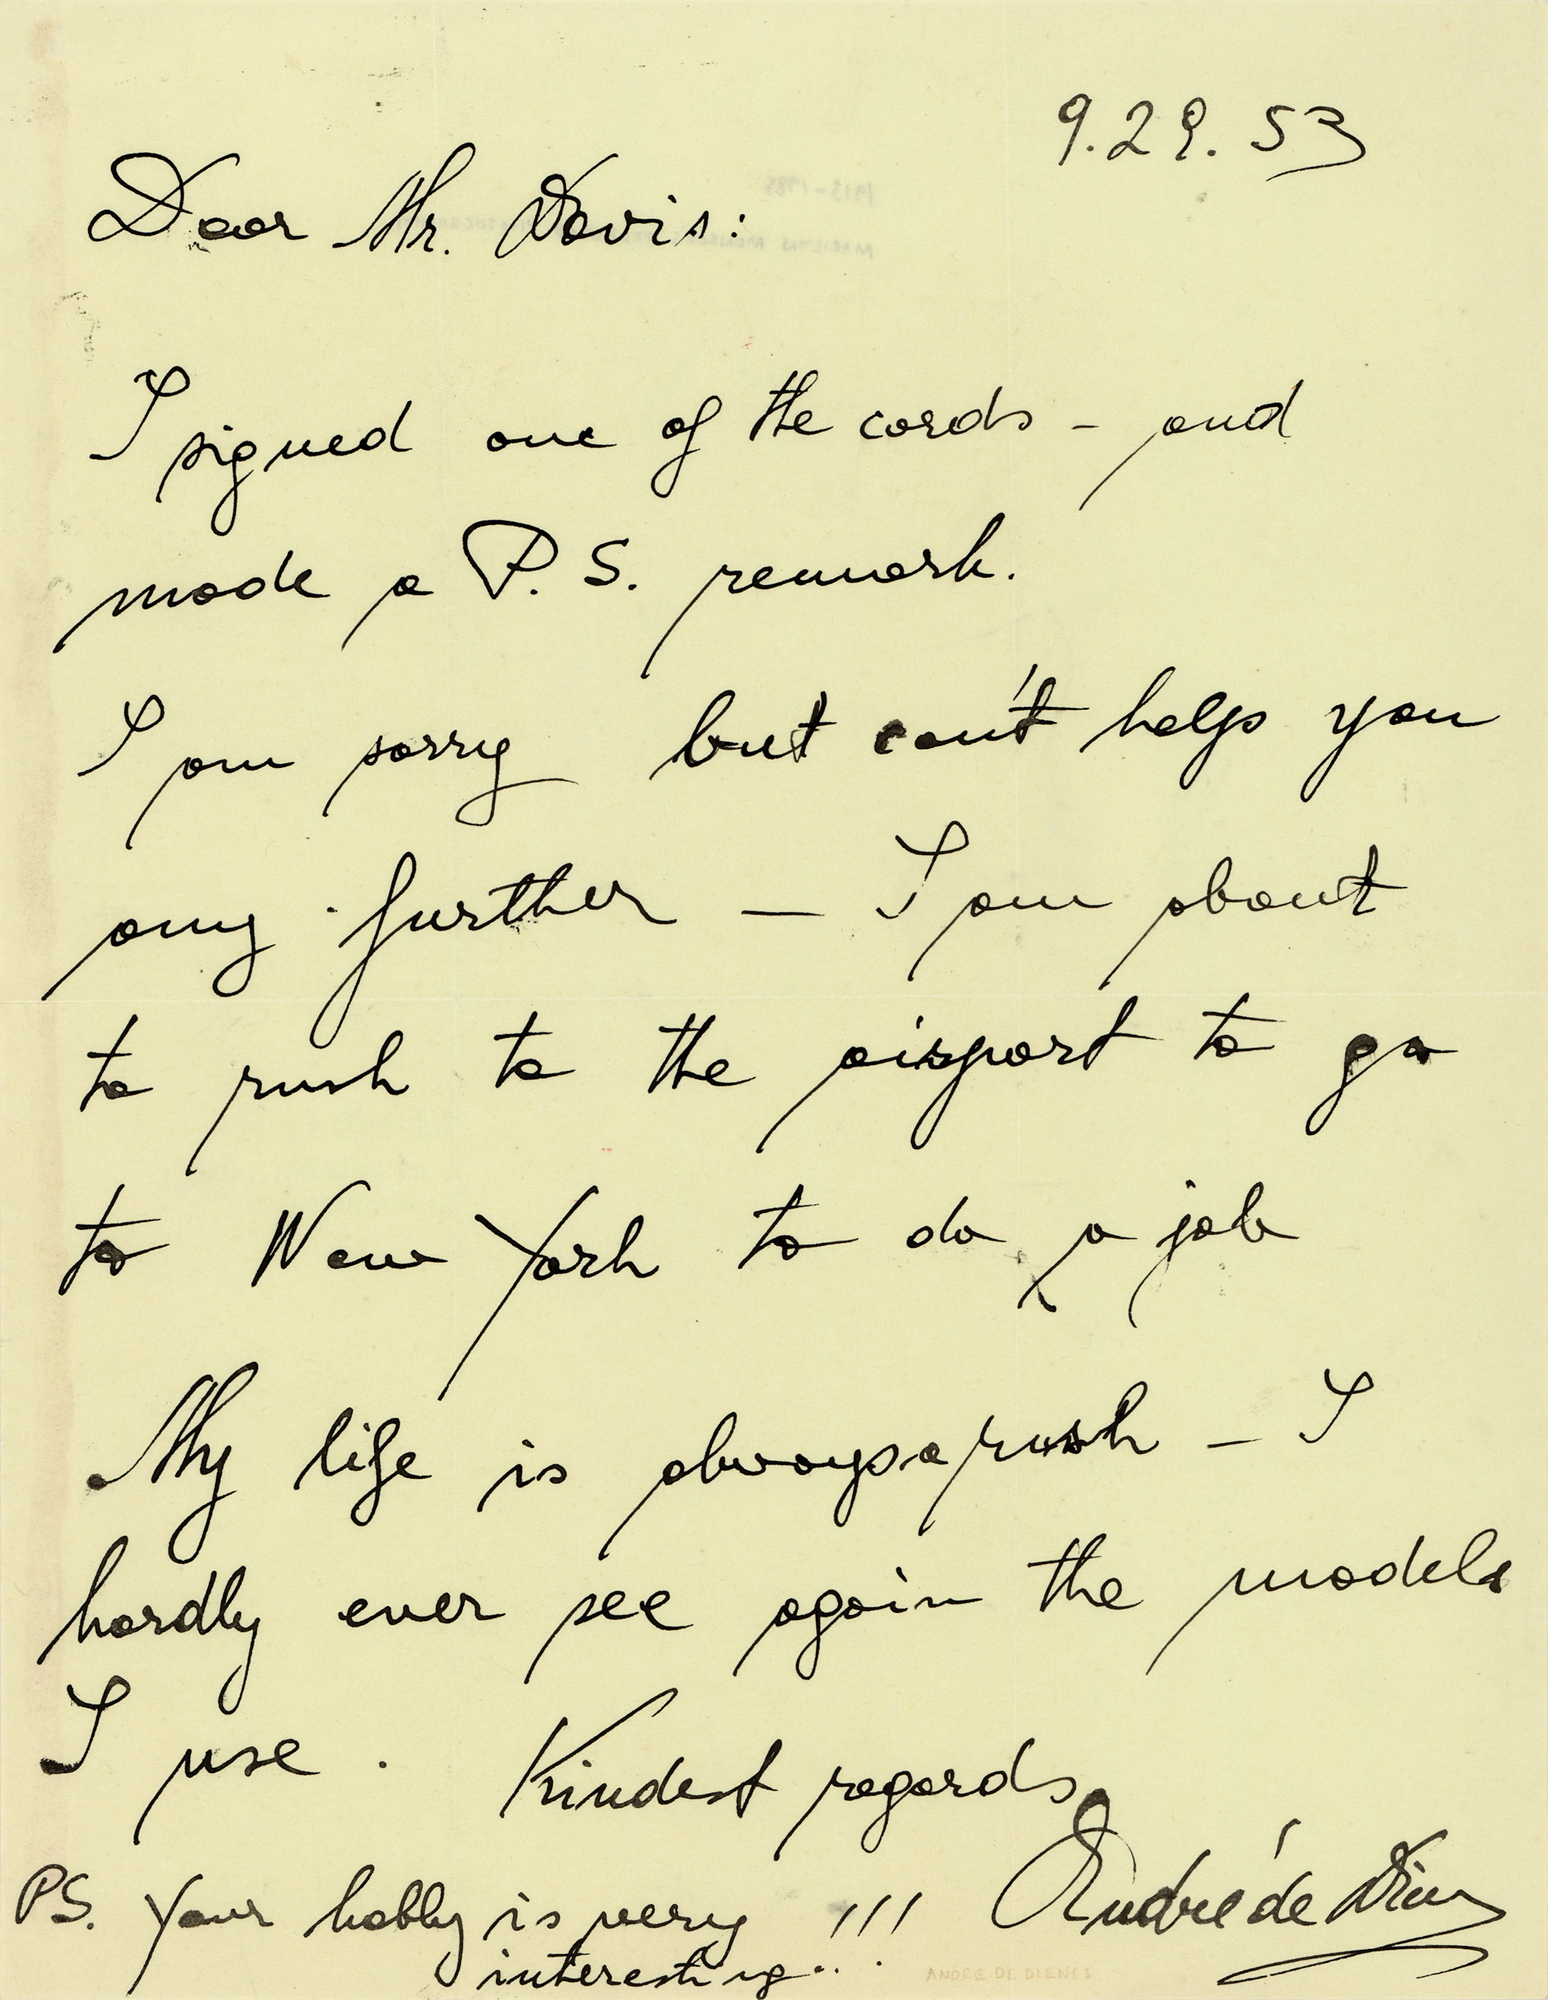 9.29.53
Dear Mr. Davis:
I signed one of the cards - and
made a P.S. remark.
I am sorry but can't help you
any further — I am about
to rush to the airport to go
to New York to do a job
My life is always a rush — I
hardly ever see again the models
I use. Kindest regards
André de Dienes
PS. Your hobby is very !!!
interesting..
ANDRE DE DIENES